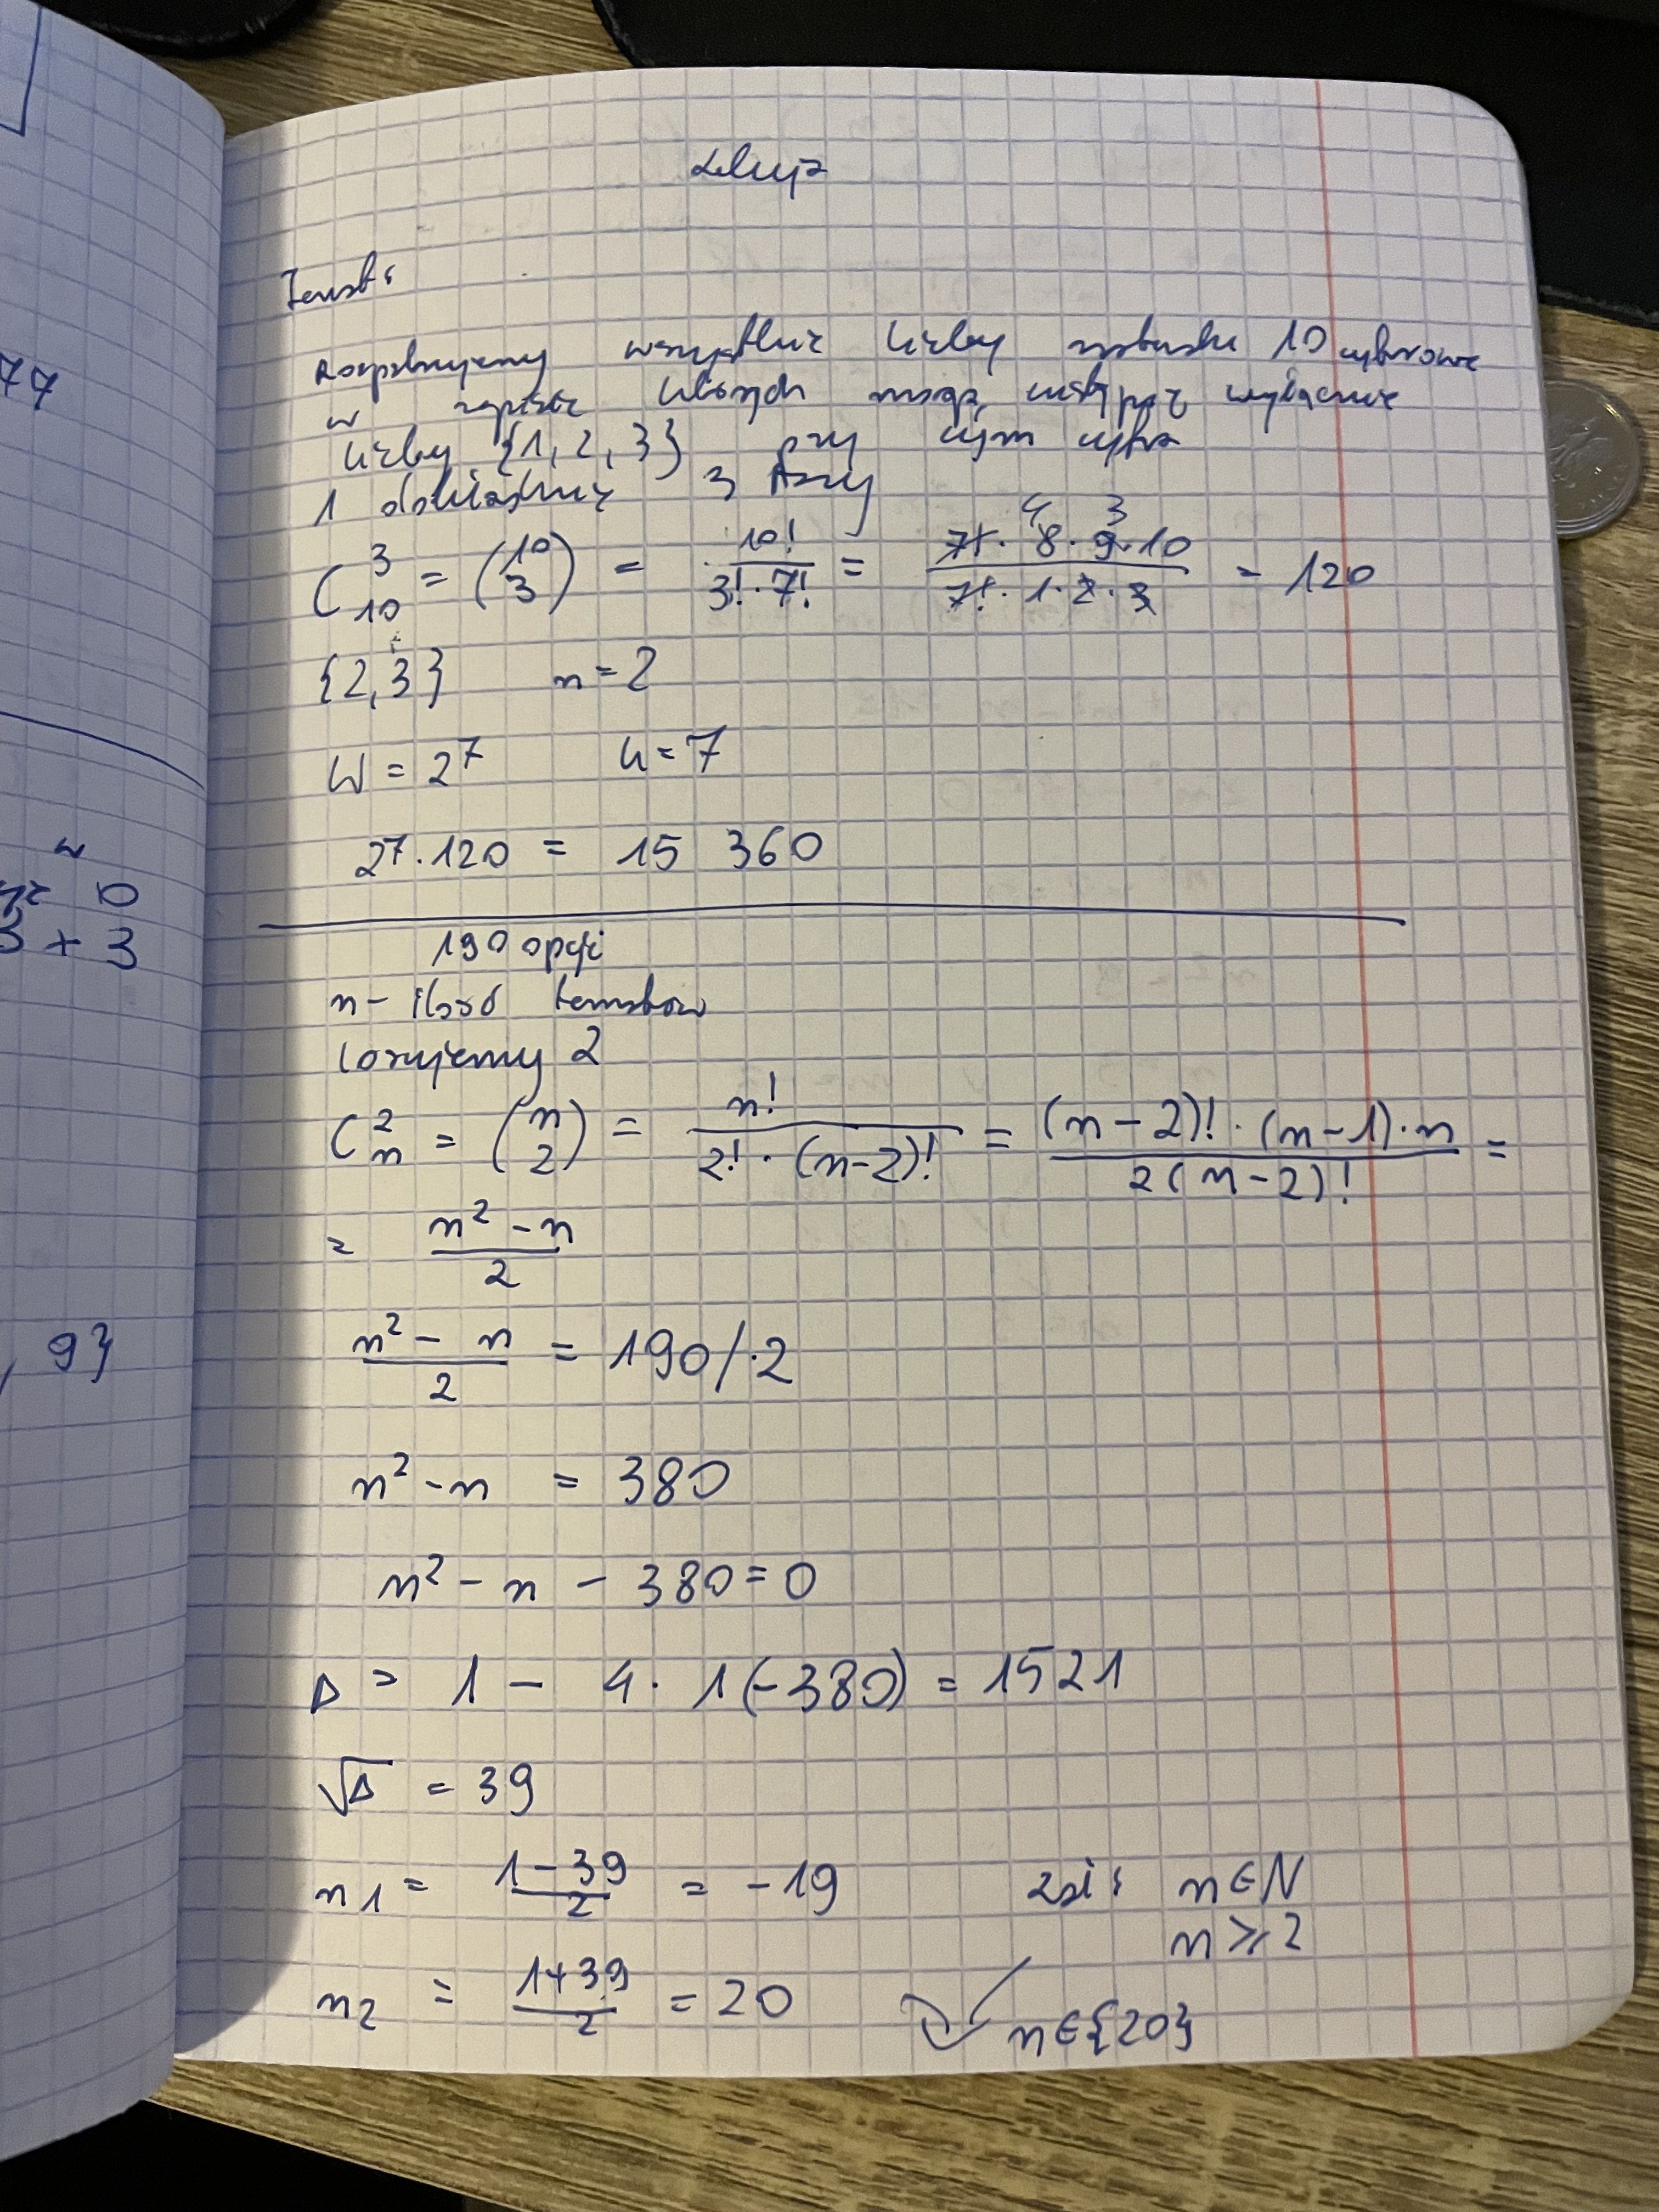 Temat:
Rozpatrujemy wszystkie liczby naturalne 10 cyfrowe
w zapisie których mogą wstąpić wyłącznie
liczby {1, 2, 3} przy czym cyfra
1 dokładnie 3 razy
C³₁₀ = (10 3) = 10!/(3!·7!) = (7!·8·9·10)/(7!·1·2·3) = 120
4 3
{2,3} n=2
W = 2⁷ k=7
2⁷·120 = 15 360
190 opcji
n- ilość tematów
losujemy 2
C²ₙ = (n 2) = n!/(2!·(n-2)!) = ((n-2)!·(n-1)·n)/(2(n-2)!) =
= (n²-n)/2
(n²- n)/2 = 190/·2
n²-n = 380
n² - n - 380=0
Δ = 1 - 4·1(-380) = 1521
√Δ = 39
n1 = (1-39)/2 = -19 zał: n∈N
n⩾2
n2 = (1+39)/2 = 20 n∈{20}
77
w
0
3 + 3
, 9}